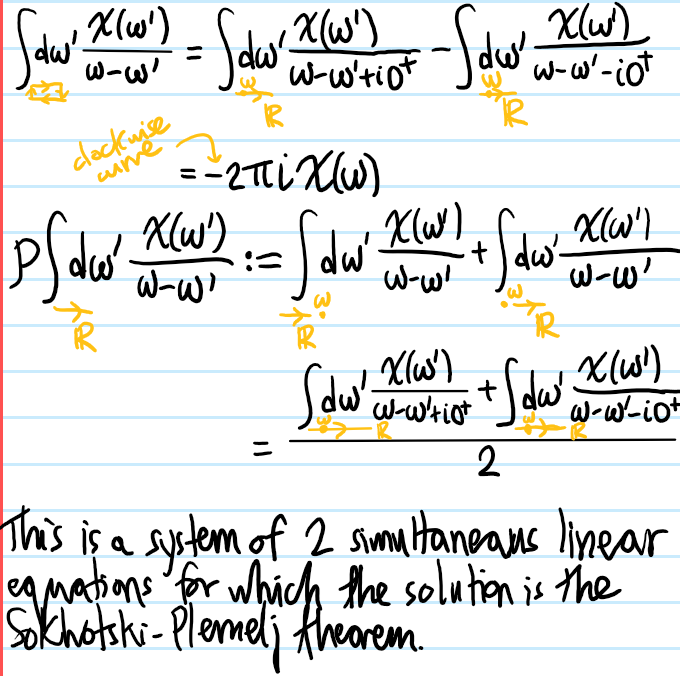 ∫dω' χ(ω')/(ω-ω') = ∫dω' χ(ω')/(ω-ω'+i0⁺) - ∫dω' χ(ω')/(ω-ω'-i0⁺)
ω ℝ ω ℝ
clockwise
curve
= -2πiχ(ω)
P∫dω' χ(ω')/(ω-ω') := ∫dω' χ(ω')/(ω-ω') + ∫dω' χ(ω')/(ω-ω')
ℝ ℝ ω ω ℝ
= (∫dω' χ(ω')/(ω-ω'+i0⁺) + ∫dω' χ(ω')/(ω-ω'-i0⁺))/2
ω ℝ ω ℝ
This is a system of 2 simultaneous linear
equations for which the solution is the
Sokhotski-Plemelj theorem.